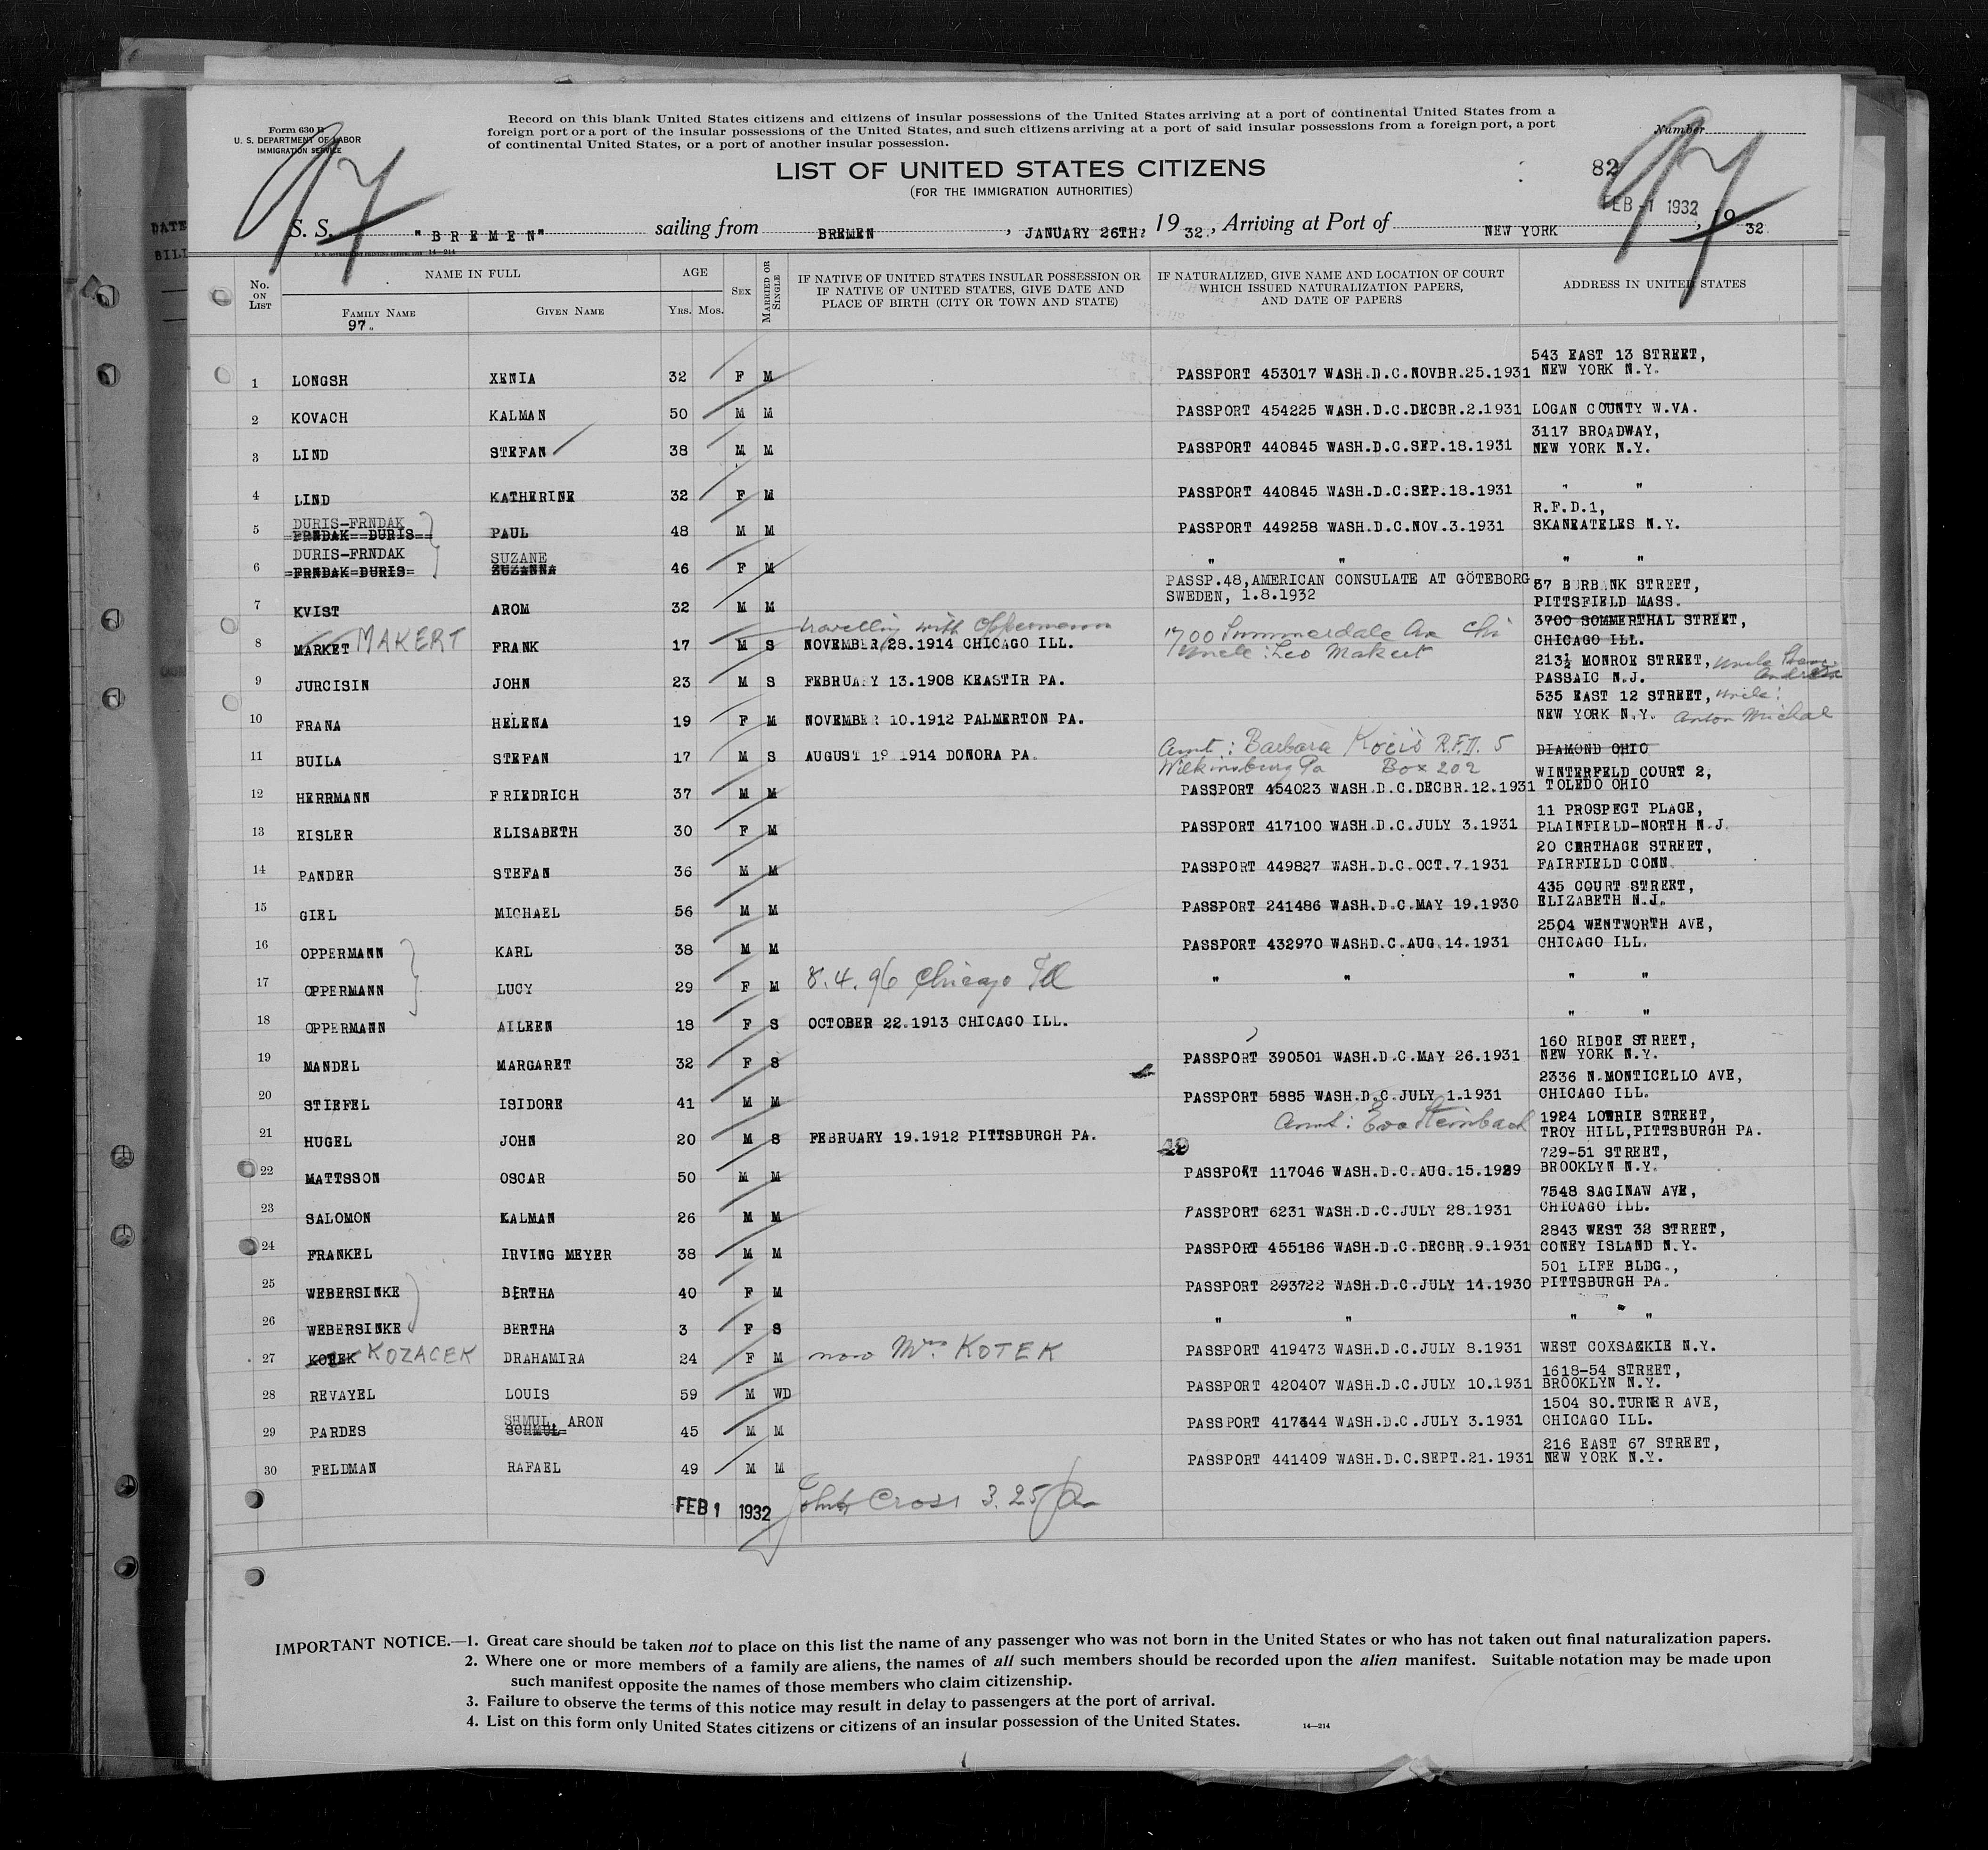 Form 630 B
U. S. DEPARTMENT OF LABOR
IMMIGRATION SERVICE
Record on this blank United States citizens and citizens of insular possessions of the United States arriving at a port of continental United States from a
foreign port or a port of the insular possessions of the United States, and such citizens arriving at a port of said insular possessions from a foreign port, a port
of continental United States, or a port of another insular possession.
Number
97
97
LIST OF UNITED STATES CITIZENS
(FOR THE IMMIGRATION AUTHORITIES)
82
FEB -1 1932
S. S. "BREMEN" sailing from BREMEN, JANUARY 26TH, 19 32., Arriving at Port of NEW YORK, 19 32.
14-214
DATE
BILL
No. ON LIST
NAME IN FULL
FAMILY NAME
97.
GIVEN NAME
AGE
YRS. MOS.
SEX
MARRIED OR SINGLE
IF NATIVE OF UNITED STATES INSULAR POSSESSION OR
IF NATIVE OF UNITED STATES, GIVE DATE AND
PLACE OF BIRTH (CITY OR TOWN AND STATE)
IF NATURALIZED, GIVE NAME AND LOCATION OF COURT
WHICH ISSUED NATURALIZATION PAPERS,
AND DATE OF PAPERS
ADDRESS IN UNITED STATES
543 EAST 13 STREET,
1 LONGSH XENIA 32 F M PASSPORT 453017 WASH.D.C.NOVBR.25.1931 NEW YORK N.Y.
2 KOVACH KALMAN 50 M M PASSPORT 454225 WASH.D.C.DECBR.2.1931 LOGAN COUNTY W.VA.
3117 BROADWAY,
3 LIND STEFAN 38 M M PASSPORT 440845 WASH.D.C.SEP.18.1931 NEW YORK N.Y.
4 LIND KATHERINE 32 F M PASSPORT 440845 WASH.D.C.SEP.18.1931 " "
DURIS-FRNDAK R.F.D.1,
5 FRNDAK--DURIS PAUL 48 M M PASSPORT 449258 WASH.D.C.NOV.3.1931 SKANEATELES N.Y.
DURIS-FRNDAK SUZANE " " " "
6 FRNDAK=DURIS ZUZANNA 46 F M
PASSP.48,AMERICAN CONSULATE AT GÖTEBORG 57 BURBANK STREET,
7 KVIST AROM 32 M M SWEDEN, 1.8.1932 PITTSFIELD MASS.
travelling with Oppermann 1700 Summerdale Av Chi 3700 SOMMERTHAL STREET,
8 MARKET MAKERT FRANK 17 M S NOVEMBER 28.1914 CHICAGO ILL. Uncle: Leo Makert CHICAGO ILL.
213½ MONROE STREET, Uncle
9 JURCISIN JOHN 23 M S FEBRUARY 13.1908 KEASTIR PA. PASSAIC N.J.
535 EAST 12 STREET, Uncle:
10 FRANA HELENA 19 F M NOVEMBER 10.1912 PALMERTON PA. NEW YORK N.Y. Anton Michal
Aunt: Barbara Kocis R.F.D. 5 DIAMOND OHIO
11 BUILA STEFAN 17 M S AUGUST 19 1914 DONORA PA. Wilkinsburg Pa Box 202
WINTERFELD COURT 2,
12 HERRMANN FRIEDRICH 37 M M PASSPORT 454023 WASH.D.C.DECBR.12.1931 TOLEDO OHIO
11 PROSPECT PLACE,
13 EISLER ELISABETH 30 F M PASSPORT 417100 WASH.D.C.JULY 3.1931 PLAINFIELD-NORTH N.J.
20 CARTHAGE STREET,
14 PANDER STEFAN 36 M M PASSPORT 449827 WASH.D.C.OCT.7.1931 FAIRFIELD CONN.
435 COURT STREET,
15 GIEL MICHAEL 56 M M PASSPORT 241486 WASH.D.C.MAY 19.1930 ELIZABETH N.J.
2504 WENTWORTH AVE,
16 OPPERMANN KARL 38 M M PASSPORT 432970 WASHD.C.AUG.14.1931 CHICAGO ILL.
17 OPPERMANN LUCY 29 F M 8.4.96 Chicago Ill " " " "
18 OPPERMANN AILEEN 18 F S OCTOBER 22.1913 CHICAGO ILL. " "
160 RIDGE STREET,
19 MANDEL MARGARET 32 F S PASSPORT 390501 WASH.D.C.MAY 26.1931 NEW YORK N.Y.
2336 N.MONTICELLO AVE,
20 STIEFEL ISIDORE 41 M M PASSPORT 5885 WASH.D.C.JULY 1.1931 CHICAGO ILL.
Aunt: Eva Steinbach 1924 LOWRIE STREET,
21 HUGEL JOHN 20 M S FEBRUARY 19.1912 PITTSBURGH PA. TROY HILL,PITTSBURGH PA.
729-51 STREET,
22 MATTSSON OSCAR 50 M M PASSPORT 117046 WASH.D.C.AUG.15.1929 BROOKLYN N.Y.
7548 SAGINAW AVE,
23 SALOMON KALMAN 26 M M PASSPORT 6231 WASH.D.C.JULY 28.1931 CHICAGO ILL.
2843 WEST 32 STREET,
24 FRANKEL IRVING MEYER 38 M M PASSPORT 455186 WASH.D.C.DECBR.9.1931 CONEY ISLAND N.Y.
501 LIFE BLDG.,
25 WEBERSINKE BERTHA 40 F M PASSPORT 293722 WASH.D.C.JULY 14.1930 PITTSBURGH PA.
26 WEBERSINKE BERTHA 3 F S " " " " "
27 KOTEK KOZACEK DRAHAMIRA 24 F M now Mrs. KOTEK PASSPORT 419473 WASH.D.C.JULY 8.1931 WEST COXSAEKIE N.Y.
1618-54 STREET,
28 REVAYEL LOUIS 59 M WD PASSPORT 420407 WASH.D.C.JULY 10.1931 BROOKLYN N.Y.
SHMUL, ARON 1504 SO.TURNER AVE,
29 PARDES SCHMUL= 45 M M PASSPORT 417344 WASH.D.C.JULY 3.1931 CHICAGO ILL.
216 EAST 67 STREET,
30 FELDMAN RAFAEL 49 M M PASSPORT 441409 WASH.D.C.SEPT.21.1931 NEW YORK N.Y.
FEB 1 1932 Cross 3.25
IMPORTANT NOTICE.—1. Great care should be taken not to place on this list the name of any passenger who was not born in the United States or who has not taken out final naturalization papers.
2. Where one or more members of a family are aliens, the names of all such members should be recorded upon the alien manifest. Suitable notation may be made upon
such manifest opposite the names of those members who claim citizenship.
3. Failure to observe the terms of this notice may result in delay to passengers at the port of arrival.
4. List on this form only United States citizens or citizens of an insular possession of the United States.
14—214